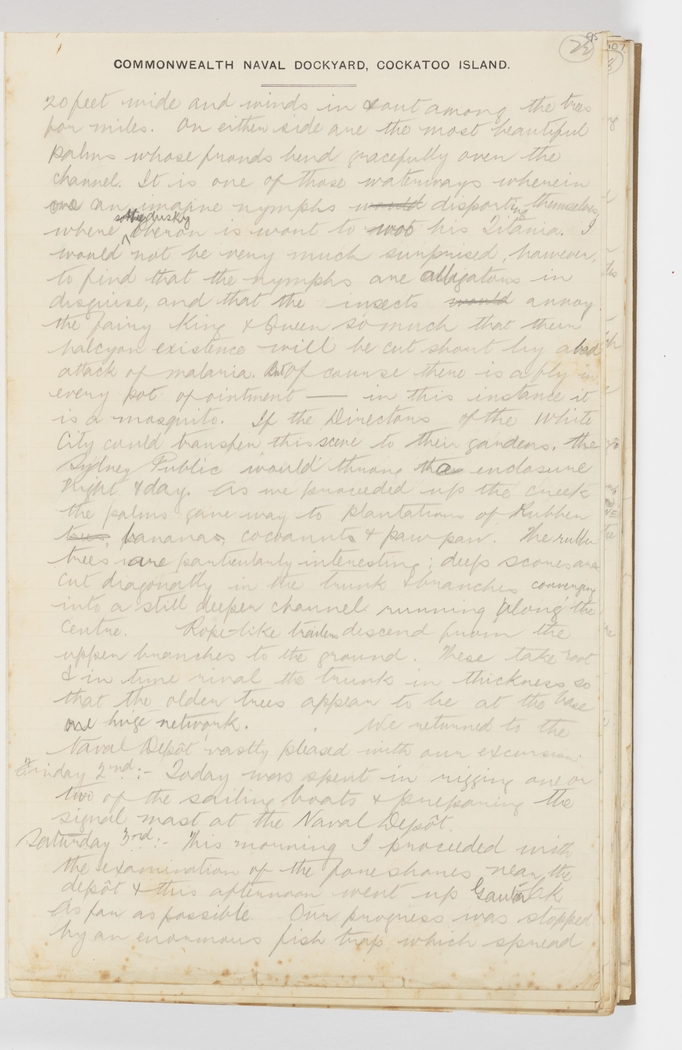 95
22
COMMONWEALTH NAVAL DOCKYARD, COCKATOO ISLAND.
20 feet wide and winds in & out among the trees
for miles. On either side are the most beautiful
palms whose fronds bend gracefully over the
channel. It is one of those waterways wherein
one can imagine nymphs would disporting themselves,
some dusky
where Oberon is wont to woo his Titania. I
would not be very much surprised, however,
to find that the nymphs are alligators in
disguise, and that the insects would annoy
the fairy King & Queen so much that their
halcyon existence will be cut short by a bad
attack of malaria. But of course there is a fly in
every pot of ointment — in this instance it
is a mosquito. If the Directors of the White
City could transfer this scene to their gardens, the
Sydney Public would throng the enclosure
night & day. As we proceeded up the creek
the palms gave way to plantations of Rubber
trees bananas, cocoanuts & paw paw. The rubber
trees are particularly interesting; deep scores are
cut diagonally in the trunk & branches converging
into a still deeper channel running along the
centre. Rope-like trailers descend from the
upper branches to the ground. These take root
& in time rival the trunk in thickness so
that the older trees appear to be at the base
one huge network. We returned to the
Naval Depôt vastly pleased with our excursion.
Friday 2nd:- Today was spent in rigging one or
two of the sailing boats & preparing the
signal mast at the Naval Depôt.
Saturday 3rd:- This morning I proceeded with
the examination of the foreshores near the
depôt & this afternoon went up Ck
as far as possible. Our progress was stopped
by an enormous fish trap which spread